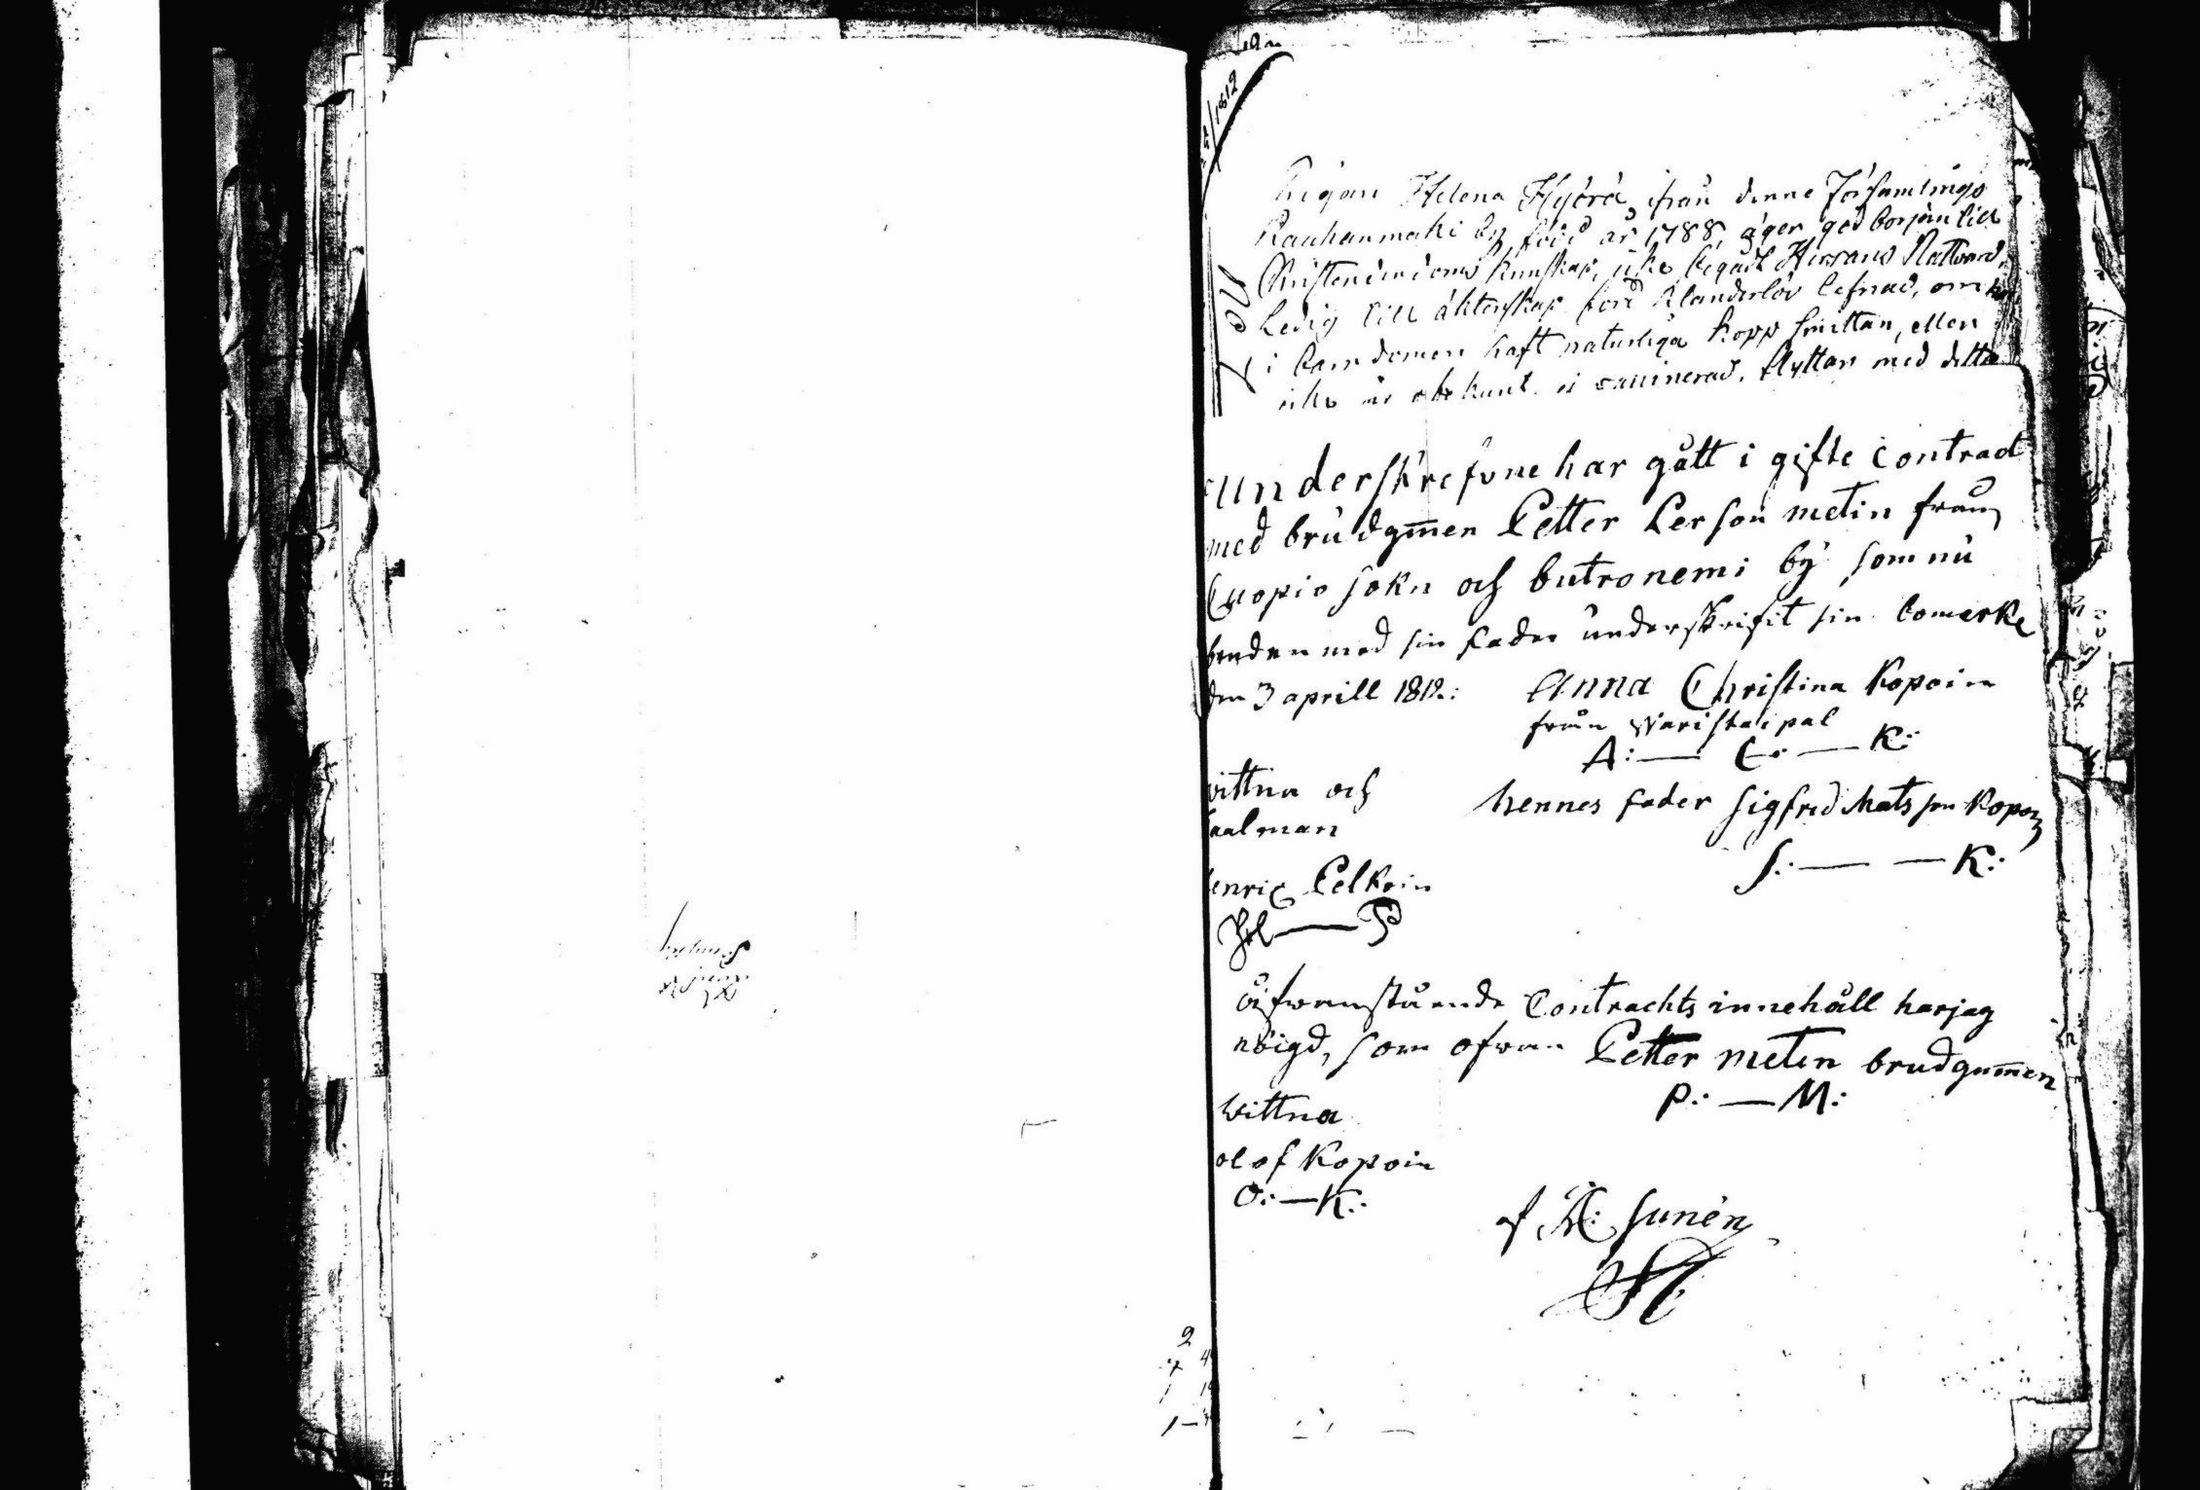 Pigan Helena Hyörä ifrån denne Församlings
Rauhanmäki by född år 1788, äger god borjan till
Christendendoms kunskap, icke begådt Herrans Nattvard,
Ledig till äktenskap förd klanderlös lefnad, om hon
i barndomen haft naturliga kopp smittan, eller
icke är obekant. ei vaccinerad. flyttar med detta
underskrefvne har gått i gifte contract
med brudgmen Petter Persson metin från
Cuopio sokn och butronemi bÿ som nu
bruden med sin fader underskrifit sin bomerke
den 3 aprill 1812.: Anna Christina Kopoin
från Varistaipal
A:— C:— K:
vittna och hennes fader Sigfred Matsson Kopoin
aalman
S:— — K:
enric Pelkoin
öfwanstående Contrachts innehåll har jag
nöigd, som ofwan Petter metin brudgumen
P:— M:
wittna
olof Kopoin
O:—K:
af sunén